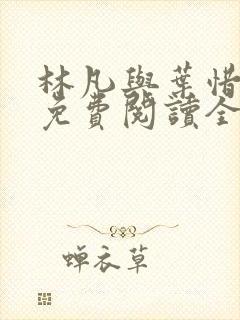 林凡與葉惜
免費閱讀全
蝉衣草